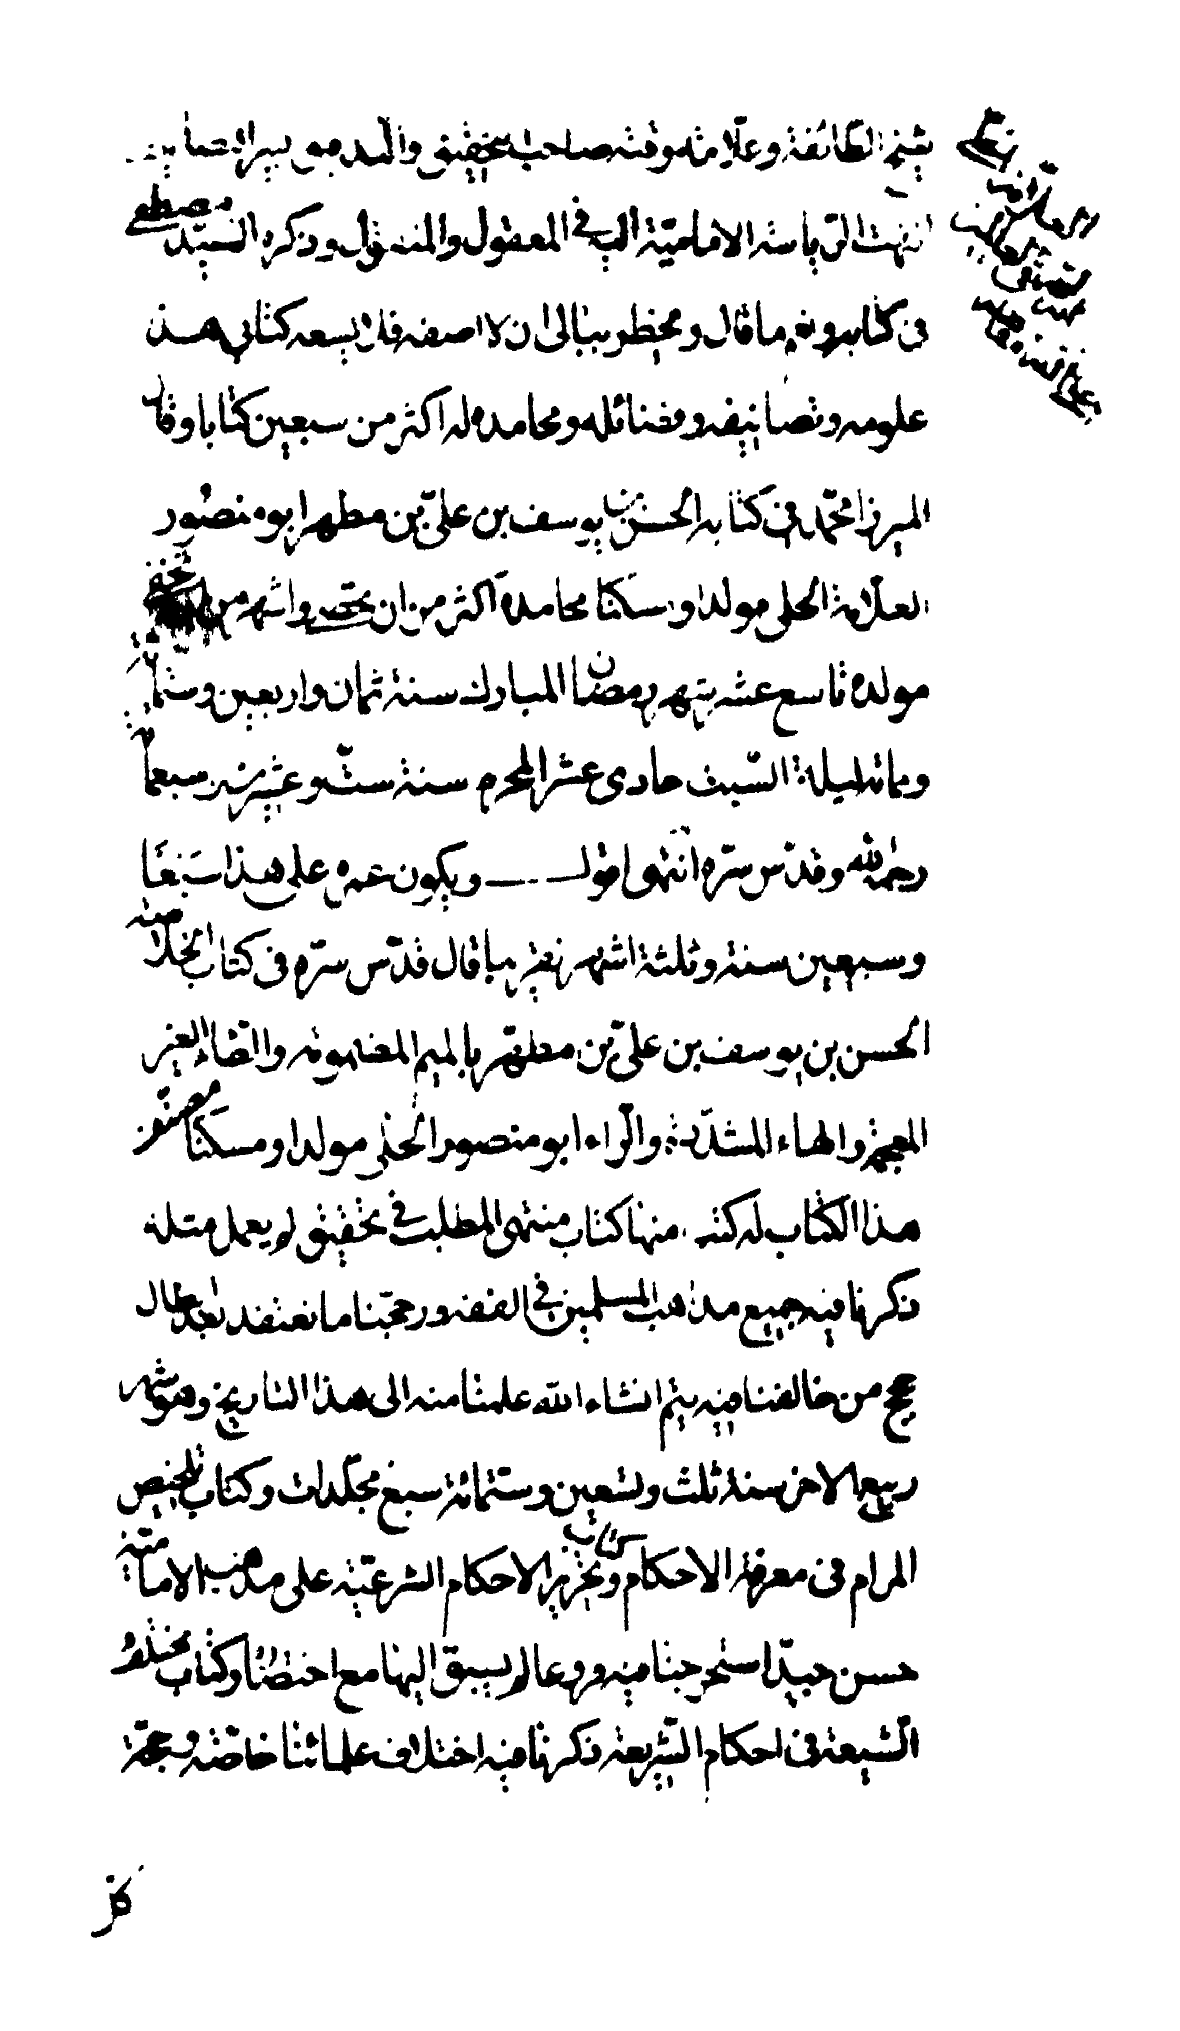 شيخ الطائفة وعلامة وقته صاحب التحقيق والتدقيق كثير التصانيف
انتهت الرياسة الامامية اليه في المعقول والمنقول وذكره السيد مصطفى
في كتابه وقال ويخطر ببالي ان لا اصفه كتابي هذا
علومه وتصانيفه وفضائله ومحامده له اكثر من سبعين كتابا وقال
الميرزا محمد في كتابه الحسن بن يوسف بن علي بن مطهر ابو منصور
العلامة الحلي مولدا ومسكنا محامده اكثر من ان تحصى واشهر من ان تخفى
مولده تاسع عشر شهر رمضان المبارك سنة ثمان واربعين وستمائة
ومات ليلة السبت حادى عشر المحرم سنة ست وعشرين وسبعمائة
رحمه الله وقدس سره انتهى اقول ويكون عمره على هذا سبعا
وسبعين سنة وثلثة اشهر تقريبا قال قدس سره في كتاب الخلاصة
الحسن بن يوسف بن علي بن مطهر بالميم المضمومة والطاء الغير
المعجمة والهاء المشددة والراء ابو منصور الحلي مولدا ومسكنا مصنف
هذا الكتاب له كتب منها كتاب منتهى المطلب في تحقيق لم يعمل مثله
ذكرنا فيه جميع مذاهب المسلمين في الفقه ورجحنا ما نعتقده بعد ابطال
حجج من خالفنا فيه يتم انشاء الله علمنا منه الى هذا التاريخ وهو شهر
ربيع الاخر سنة ثلث وتسعين وستمائة سبع مجلدات وكتاب تلخيص
المرام في معرفة الاحكام وكتاب تحرير الاحكام الشرعية على مذهب الامامية
حسن جيد استخرجنا فيه فروعا لم يسبق اليها مع اختصاره وكتاب مختلف
الشيعة في احكام الشريعة ذكرنا فيه اختلاف علمائنا خاصة وحجة
كل